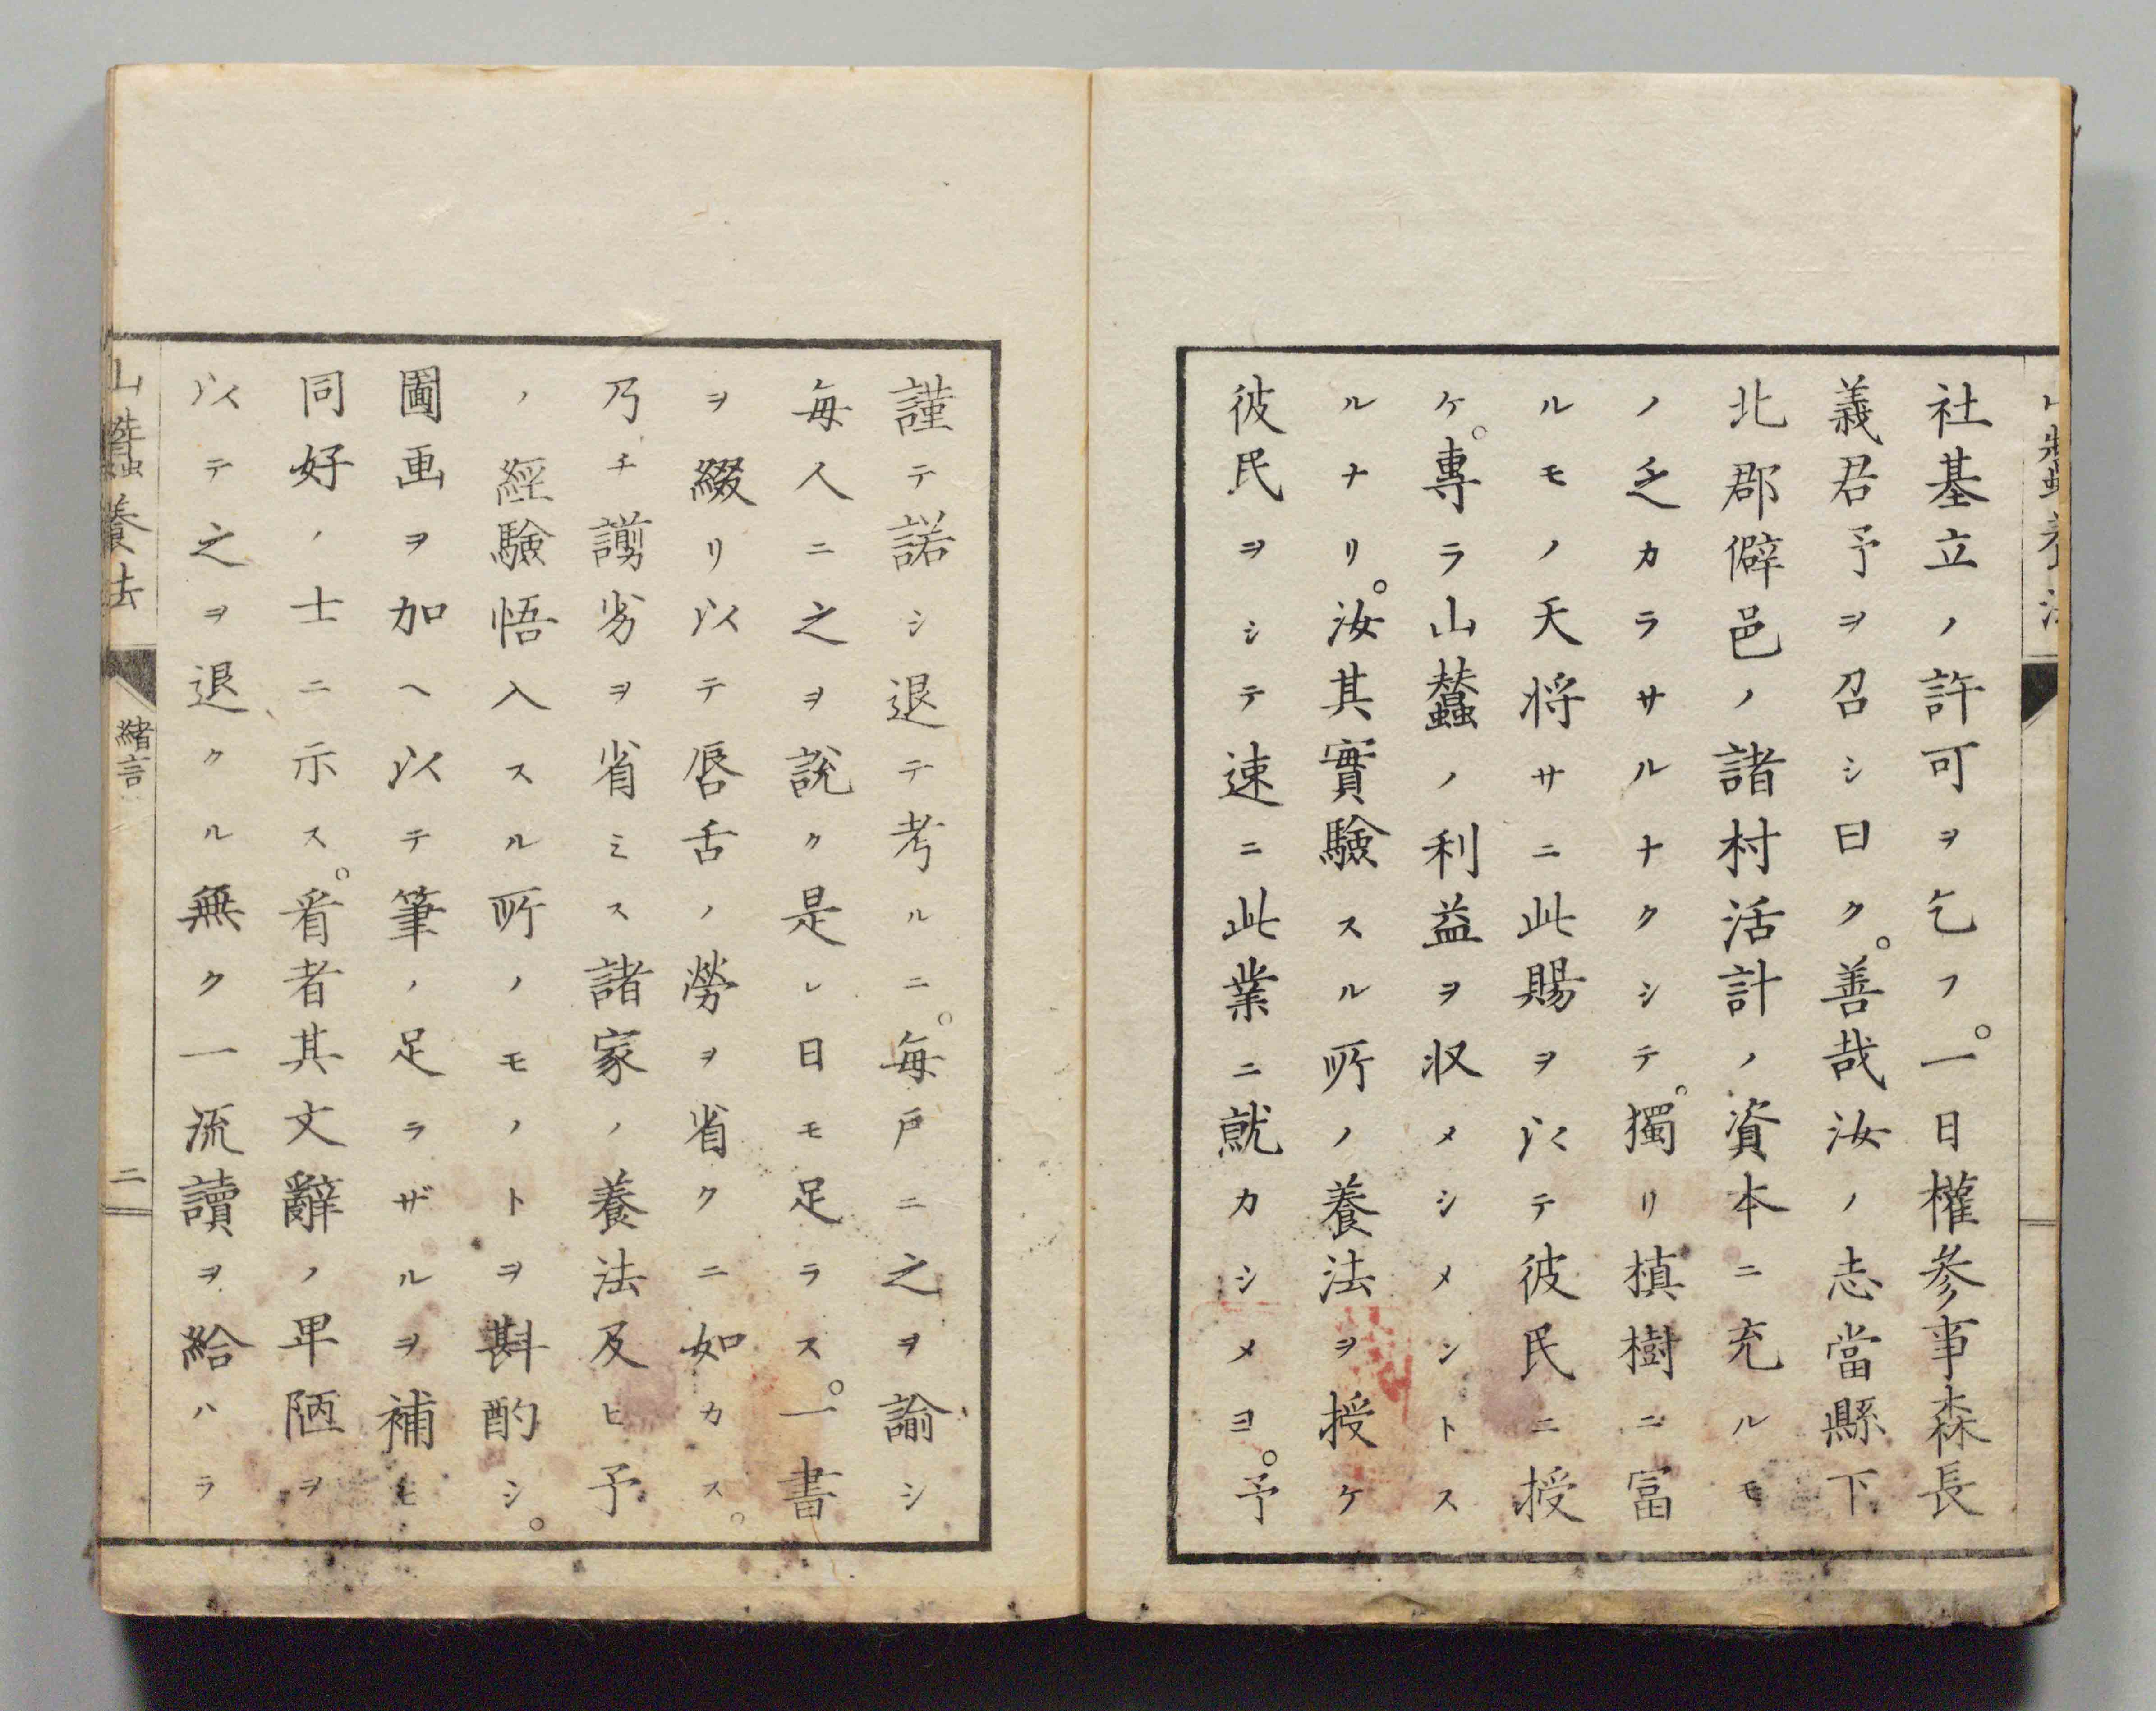 社基立ノ許可ヲ乞フ。一日權参事森長
義君予ヲ召シ曰ク。善哉汝ノ志當縣下
北郡僻邑ノ諸村活計ノ資本ニ充ルモ
ノ乏カラサルナクシテ。獨リ槙樹ニ冨
ルモノ天将サニ此賜ヲ以テ彼民ニ授
ケ。專ラ山蠶ノ利益ヲ収メシメントス
ルナリ。汝其實驗スル所ノ養法ヲ授ケ
彼民ヲシテ速ニ此業ニ就カシメヨ。予
謹テ諾シ退テ考ルニ。毎戸ニ之ヲ諭シ
毎人ニ之ヲ說ク是レ日モ足ラス。一書
ヲ綴リ以テ唇舌ノ勞ヲ省クニ如カス。
乃チ謭劣ヲ省ミス諸家ノ養法及ヒ予
ノ經驗悟入スル所ノモノトヲ斟酌シ。
圖画ヲ加ヘ以テ筆ノ足ラザルヲ補モ
同好ノ士ニ示ス。看者其文辭ノ卑陋ヲ
以テ之ヲ退クル無ク一流讀ヲ給ハラ
山蠶養法
緒言
二